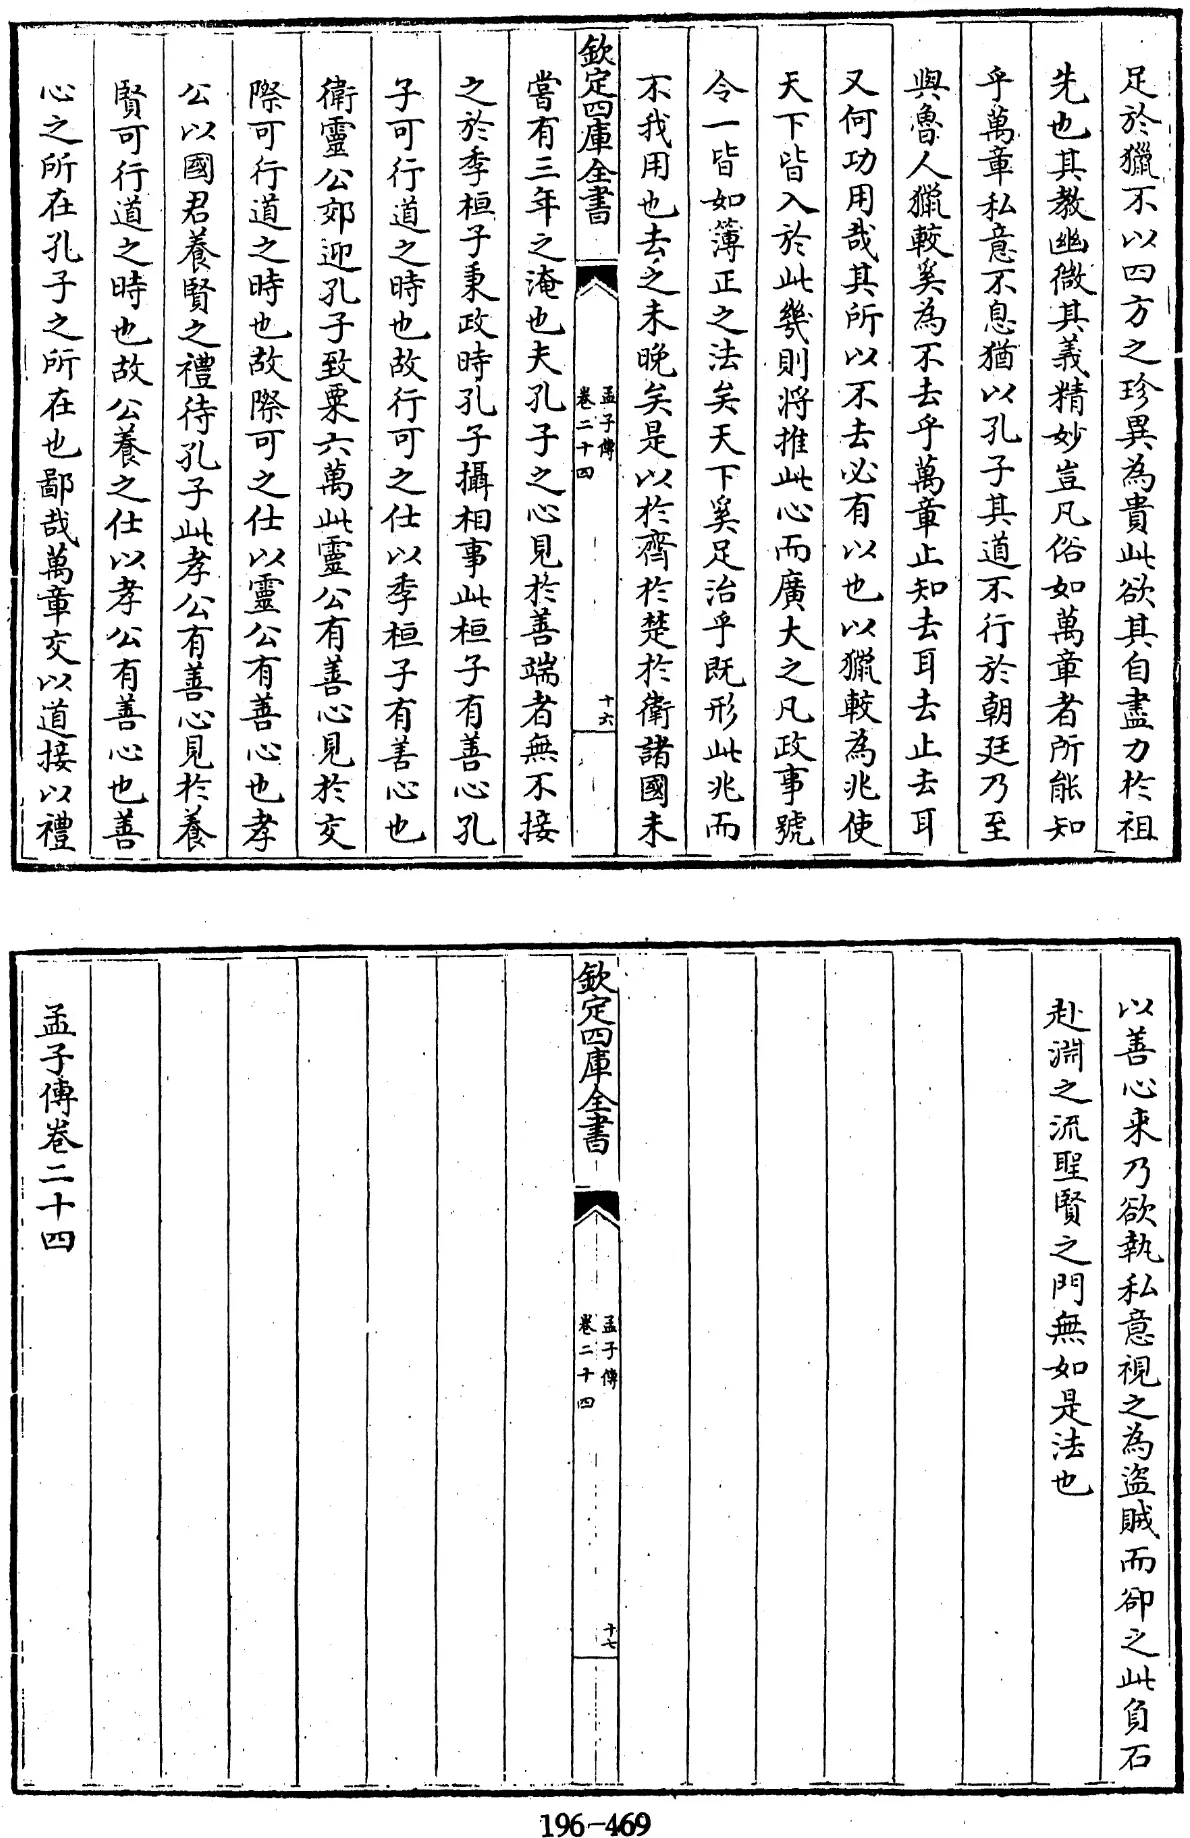 足於獵不以四方之珍異為貴此欲其自盡力於祖
先也其教幽微其義精妙豈凡俗如萬章者所能知
乎萬章私意不息猶以孔子其道不行於朝廷乃至
與魯人獵較奚為不去乎萬章止知去耳去止去耳
又何功用哉其所以不去必有以也以獵較為兆使
天下皆入於此幾則將推此心而廣大之凡政事號
令一皆如簿正之法矣天下奚足治乎既形此兆而
不我用也去之未晚矣是以於齊於楚於衛諸國未
欽定四庫全書
孟子傳
卷二十四
十六
嘗有三年之淹也夫孔子之心見於善端者無不接
之於季桓子秉政時孔子攝相事此桓子有善心孔
子可行道之時也故行可之仕以季桓子有善心也
衛靈公郊迎孔子致粟六萬此靈公有善心見於交
際可行道之時也故際可之仕以靈公有善心也孝
公以國君養賢之禮待孔子此孝公有善心見於養
賢可行道之時也故公養之仕以孝公有善心也善
心之所在孔子之所在也鄙哉萬章交以道接以禮
以善心来乃欲執私意視之為盜賊而卻之此負石
赴淵之流聖賢之門無如是法也
欽定四庫全書
孟子傳
卷二十四
十七
孟子傳卷二十四
196-469